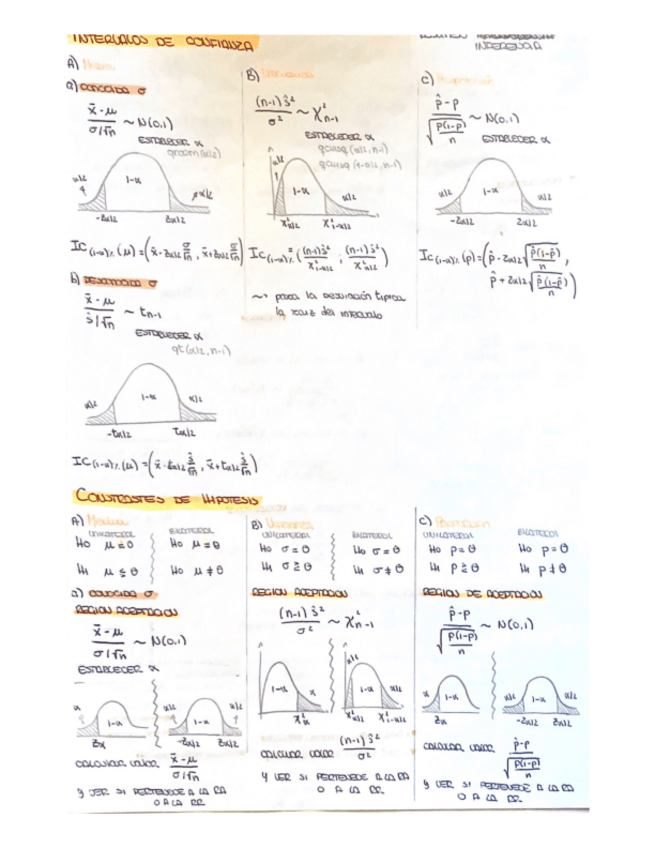 INTERVALOS DE CONFIANZA
INFERENCIA
A) Media
a) CONOCIDA σ
x̄-μ / σ/√n ~ N(0,1)
ESTABLECER α
qnorm(α/2)
α/2 1-α α/2
-Zα/2 Zα/2
IC(1-α)%(μ) = (x̄ - Zα/2 σ/√n , x̄ + Zα/2 σ/√n)
b) DESCONOCIDA σ
x̄-μ / ŝ/√n ~ tn-1
ESTABLECER α
qt(α/2, n-1)
α/2 1-α α/2
-tα/2 tα/2
IC(1-α)%(μ) = (x̄ - tα/2 ŝ/√n , x̄ + tα/2 ŝ/√n)
B) Varianza
(n-1)ŝ² / σ² ~ χ²n-1
ESTABLECER α
qchisq(α/2, n-1)
qchisq(1-α/2, n-1)
α/2 1-α α/2
χ²α/2 χ²1-α/2
IC(1-α)% = ((n-1)ŝ² / χ²1-α/2 ; (n-1)ŝ² / χ²α/2)
~> para la desviación típica
la raíz del intervalo
C) Proporción
p̂-p / √(p(1-p)/n) ~ N(0,1)
ESTABLECER α
α/2 1-α α/2
-Zα/2 Zα/2
IC(1-α)%(p) = (p̂ - Zα/2 √(p̂(1-p̂)/n) ,
p̂ + Zα/2 √(p̂(1-p̂)/n))
CONTRASTES DE HIPOTESIS
A) Media
UNILATERAL BILATERAL
H0 H0 μ=θ
H1 μ≶θ H0 μ≠θ
a) CONOCIDA σ
REGION ACEPTACION
x̄-μ / σ/√n ~ N(0,1)
ESTABLECER α
α 1-α α/2 1-α α/2
Zα -Zα/2 Zα/2
CALCULAR VALOR x̄-μ / σ/√n
Y VER SI PERTENECE A LA RA
O A LA RR.
B) Varianza
UNILATERAL BILATERAL
H0 σ=θ H0 σ=θ
H1 σ≷θ H1 σ≠θ
REGION ACEPTACION
(n-1)ŝ² / σ² ~ χ²n-1
1-α α α/2 1-α α/2
χ²α χ²α/2 χ²1-α/2
CALCULAR VALOR (n-1)ŝ² / σ²
Y VER SI PERTENECE A LA RA
O A LA RR.
C) Proporcion
UNILATERAL BILATERAL
H0 p=θ H0 p=θ
H1 p≷θ H1 p≠θ
REGION DE ACEPTACION
p̂-p / √(p(1-p)/n) ~ N(0,1)
α 1-α α/2 1-α α/2
Zα -Zα/2 Zα/2
CALCULAR VALOR p̂-p / √(p(1-p)/n)
Y VER SI PERTENECE A LA RA
O A LA RR.